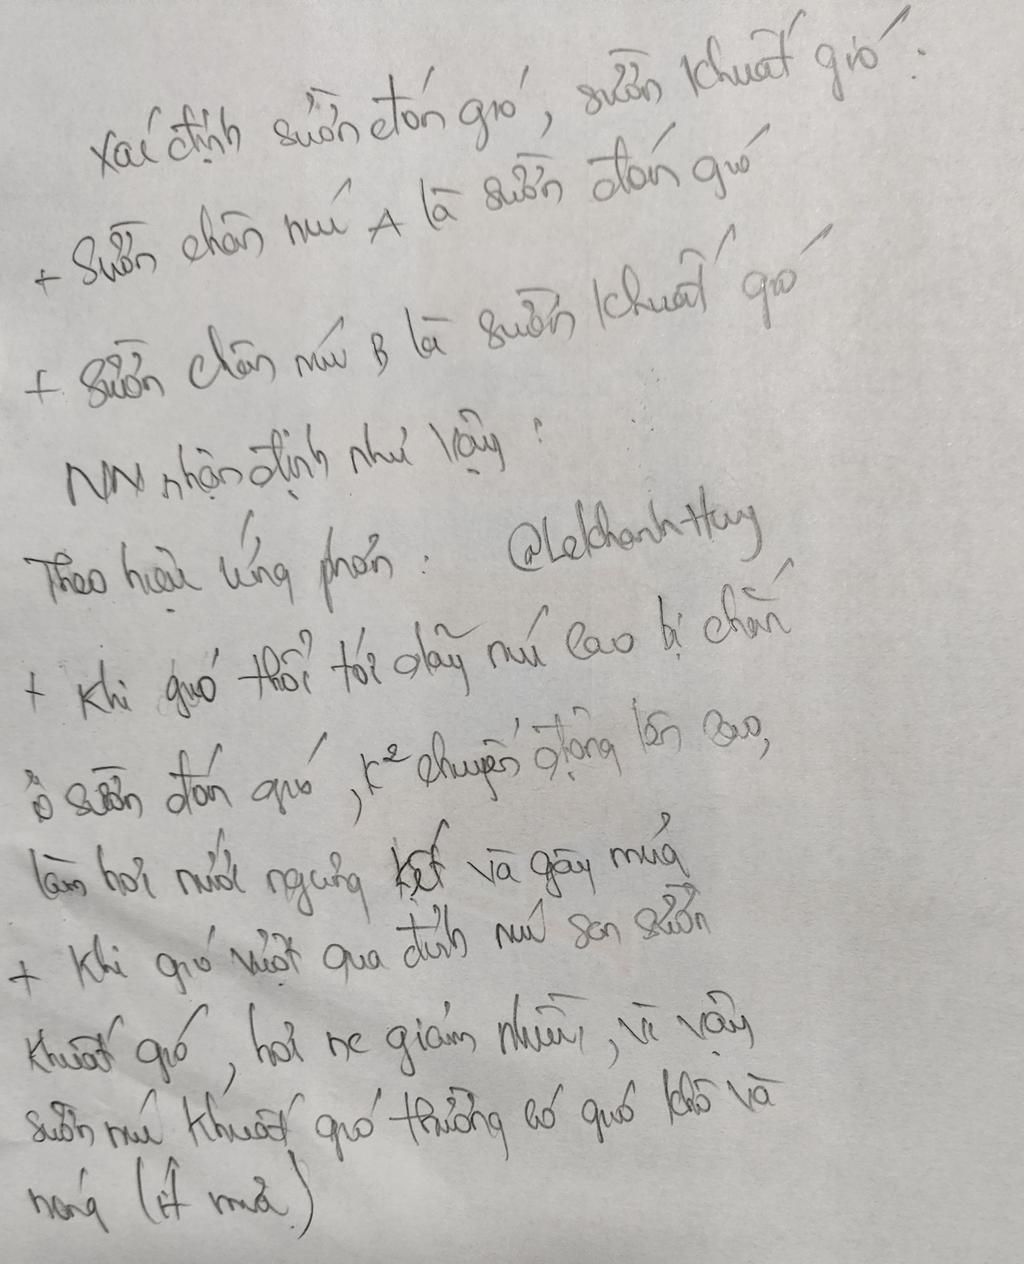 Xác định sườn đón gió, sườn khuất gió:
+ Sườn chân núi A là sườn đón gió
+ Sườn chân núi B là sườn khuất gió
NN nhận định như vậy:
Theo hiệu ứng phơn: @LeKhanhHuy
+ Khi gió thổi tới dãy núi cao bị chắn
ở sườn đón gió, k² chuyển động lên cao,
làm hơi nước ngưng kết và gây mưa
+ Khi gió vượt qua đỉnh núi san sườn
khuất gió, hơi nc giảm nhiều, vì vậy
sườn núi khuất gió thường có gió khô và
nóng (ít mưa)